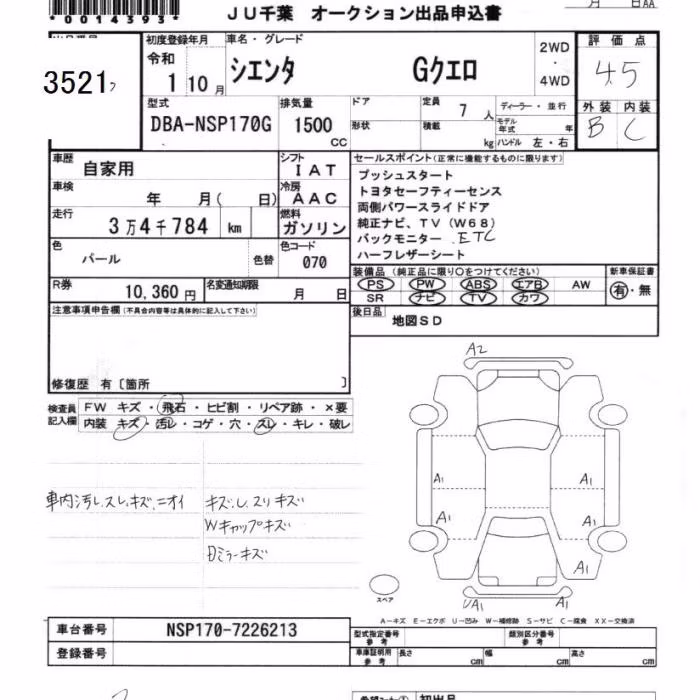 *0014393*
JU千葉 オークション出品申込書
月 日AA
初度登録年月 車名・グレード 評価点
令和 1 10月 シエンタ Gクエロ 2WD ・ 4WD 4.5
3521
外装 内装
B C
型式 排気量 ドア 定員 7 人 ディーラー・並行
DBA-NSP170G 1500 CC 形状 積載 kg モデル年式 年 ハンドル 左・右
車歴 自家用 シフト IAT セールスポイント(正常に機能するものに限ります)
車検 年 月( 日) 冷房 AAC
走行 3万4千784 km 燃料 ガソリン
プッシュスタート
トヨタセーフティーセンス
両側パワースライドドア
純正ナビ、TV(W68)
バックモニター .ETC
ハーフレザーシート
色 パール 色替 色コード 070
装備品(純正品に限り○をつけてください) 新車保証書
PS PW ABS エアB AW 有・無
SR ナビ TV カワ
R券 10,360円 名変通知期限 月 日
後日品 地図SD
注意事項申告欄(不具合内容等は具体的に記入して下さい)
修復歴 有〔箇所 〕
検査員記入欄
FW キズ・飛石・ヒビ割・リペア跡・×要
内装 キズ・汚レ・コゲ・穴・スレ・キレ・破レ
車内汚レ.スレ.キズ.ニオイ
キズ.し.スリキズ
Wキャップキズ
Dミラーキズ
A2
A1 A1
A1 A1
A1
UA1 A1
スペア
A－キズ E－エクボ U－凹み W－補修跡 S－サビ C－腐食 XX－交換済
車台番号 NSP170-7226213
型式指定番号 参考 類別区分番号 参考
登録番号
車庫証明用 参考 長さ cm 幅 cm 高さ cm
初出品